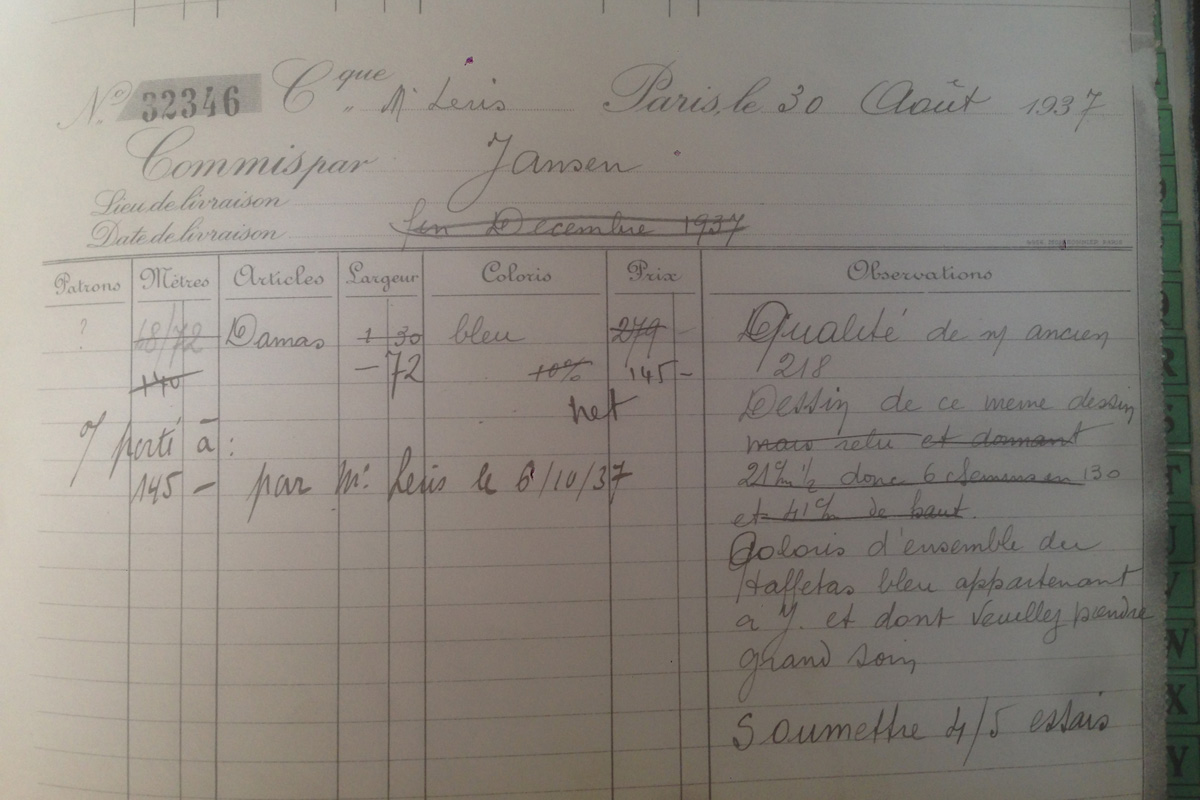 No 32346 Cque " Mr Leris Paris, le 30 Août 1937
Commis par Jansen
Lieu de livraison
Date de livraison fin Decembre 1937
Patrons Mètres Articles Largeur Coloris Prix Observations
? 68/72 Damas 1 30 bleu 279 - Qualité de n/ ancien
140 - 72 10% 145 - 218
net Dessin de ce meme dessin
porté à : mais relu et donnant
145 - par Mr Leris le 6/10/37 21 c/m ½ donc 6 chemins en 130
et 41 c/m de haut.
Coloris d'ensemble du
taffetas bleu appartenant
a J. et dont veuillez prendre
grand soin
Soumettre 4/5 essais
9
9
R
S
T
U
V
W
X
Y